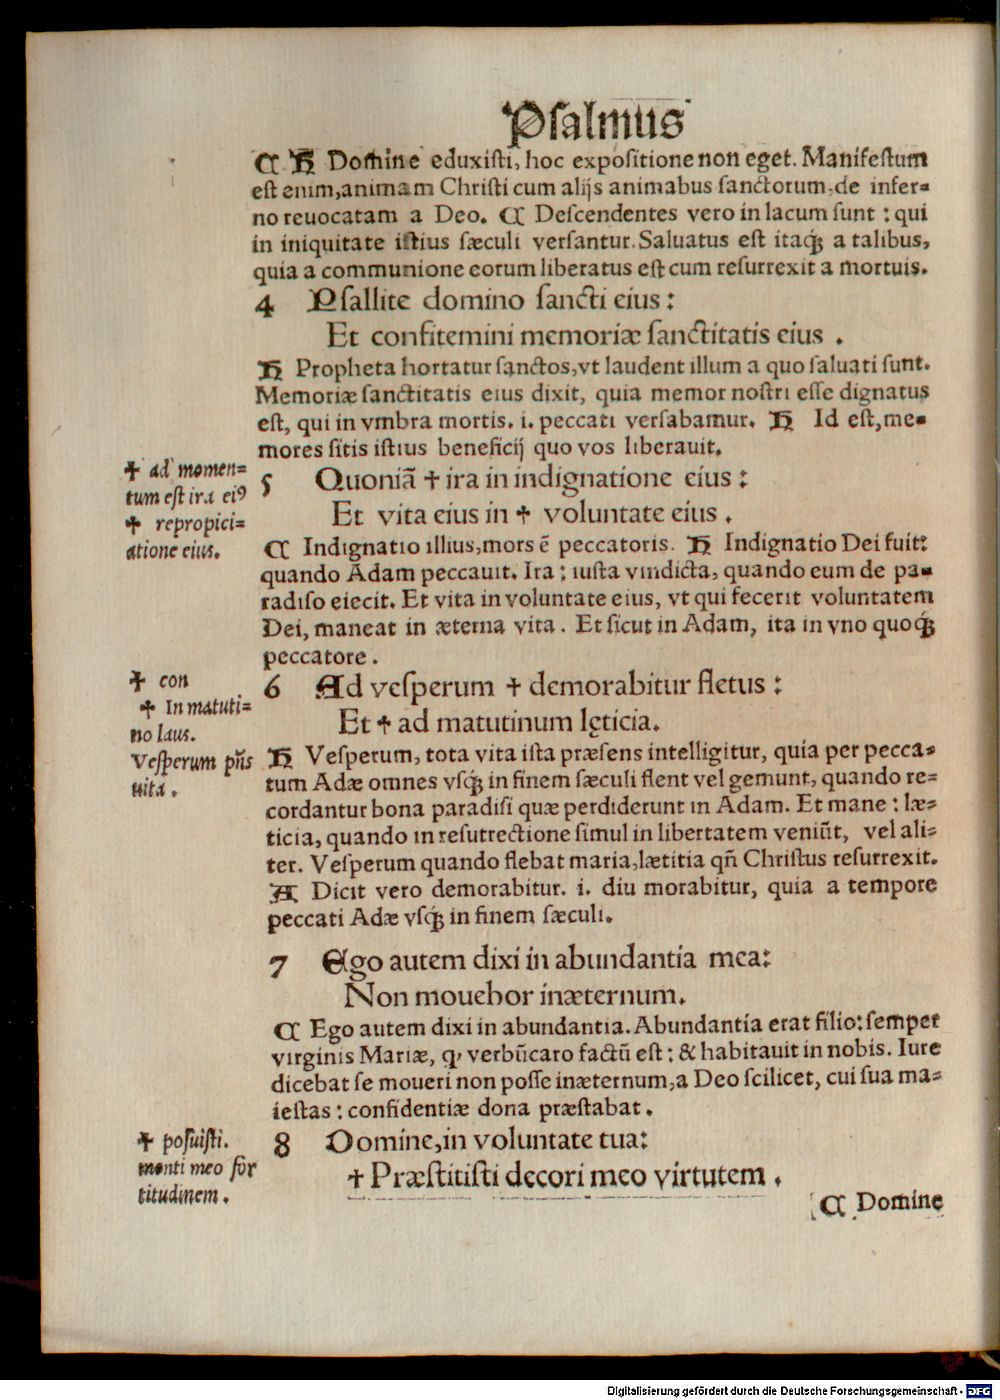 Psalmus
C H Domine eduxisti, hoc expositione non eget. Manifestum
est enim, animam Christi cum alijs animabus sanctorum, de infer=
no reuocatam a Deo. C Descendentes vero in lacum sunt : qui
in iniquitate istius sæculi versantur. Saluatus est itaqꝫ a talibus,
quia a communione eorum liberatus est cum resurrexit a mortuis.
4 Psallite domino sancti eius :
Et confitemini memoriæ sanctitatis eius .
H Propheta hortatur sanctos, vt laudent illum a quo saluati sunt.
Memoriæ sanctitatis eius dixit, quia memor nostri esse dignatus
est, qui in vmbra mortis. i. peccati versabamur. H Id est, me=
mores sitis istius beneficij quo vos liberauit.
✝ ad momen=
tum est ira eiꝰ
✝ repropici=
atione eius.
5 Quoniã ✝ ira in indignatione eius :
Et vita eius in ✝ voluntate eius .
C Indignatio illius, mors ẽ peccatoris. H Indignatio Dei fuit:
quando Adam peccauit. Ira : iusta vindicta, quando eum de pa=
radiso eiecit. Et vita in voluntate eius, vt qui fecerit voluntatem
Dei, maneat in æterna vita . Et sicut in Adam, ita in vno quoqꝫ
peccatore .
✝ con
✝ In matuti=
no laus.
Vesperum pñs
uita .
6 Ad vesperum ✝ demorabitur fletus :
Et ✝ ad matutinum lęticia.
H Vesperum, tota vita ista præsens intelligitur, quia per pecca=
tum Adæ omnes vsqꝫ in finem sæculi flent vel gemunt, quando re=
cordantur bona paradisi quæ perdiderunt in Adam. Et mane : læ=
ticia, quando in resutrectione simul in libertatem veniũt, vel ali=
ter. Vesperum quando flebat maria, lætitia qñ Christus resurrexit.
A Dicit vero demorabitur. i. diu morabitur, quia a tempore
peccati Adæ vsqꝫ in finem sæculi.
7 Ego autem dixi in abundantia mea:
Non mouebor inæternum.
C Ego autem dixi in abundantia. Abundantia erat filio: semper
virginis Mariæ, qꝫ verbũcaro factũ est : & habitauit in nobis. Iure
dicebat se moueri non posse inæternum, a Deo scilicet, cui sua ma=
iestas : confidentiæ dona præstabat .
✝ posuisti.
monti meo for
titudinem .
8 Domine, in voluntate tua:
✝ Præstitisti decori meo virtutem .
C Domine
Digitalisierung gefördert durch die Deutsche Forschungsgemeinschaft - DFG